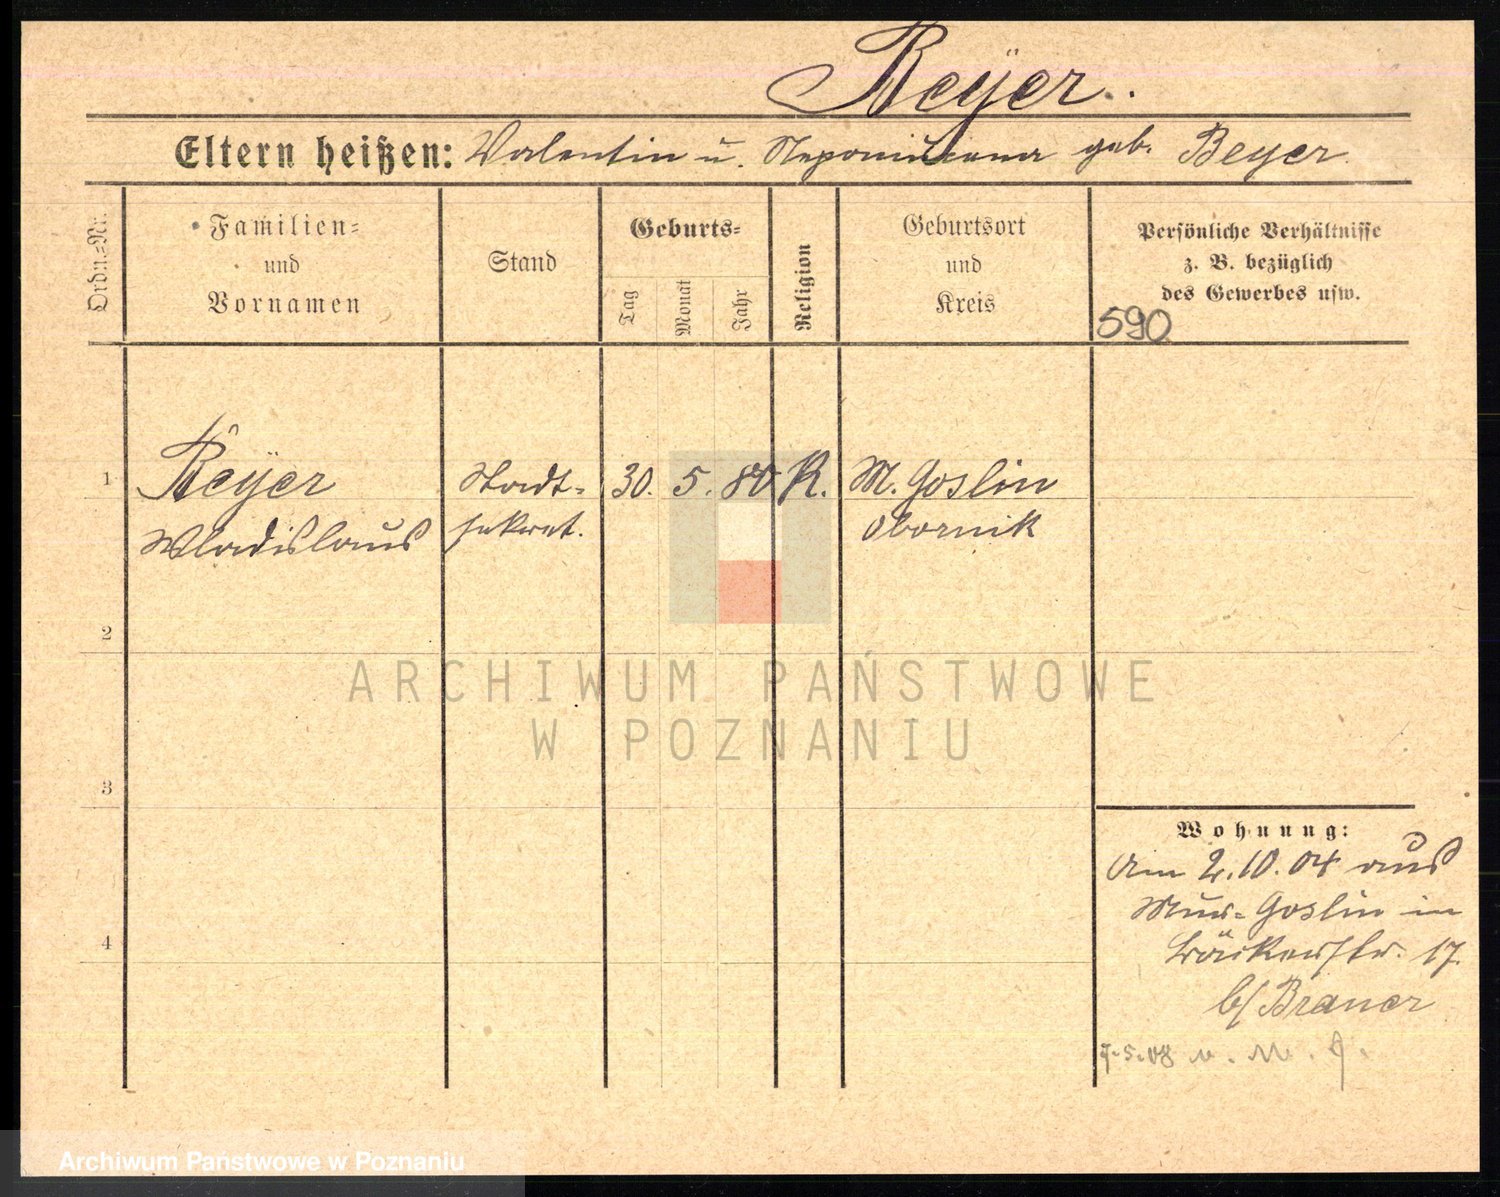 Beyer.
Eltern heißen: Valentin u. Nepomucena geb. Beyer.
Ordn.-Nr.
Familien- und Vornamen
Stand
Geburts-
Tag
Monat
Jahr
Religion
Geburtsort und Kreis
Persönliche Verhältnisse
z. B. bezüglich
des Gewerbes usw.
590
1 Beyer Stadt- 30. 5. 80 K. M. Goslin
Wladislaus sekret. Obornik
2
ARCHIWUM PAŃSTWOWE
W POZNANIU
3
Wohnung:
Am 2.10.04 aus
Mur- Goslin in
Bäckerstr. 17.
b/ Brauer
4
7.5.08 n. M. G.
Archiwum Państwowe w Poznaniu